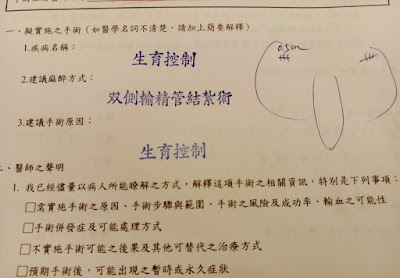 一、擬實施之手術（如醫學名詞不清楚，請加上簡要解釋）
1.疾病名稱：
生育控制
0.5cm
2.建議麻醉方式：
双側輸精管結紮術
3.建議手術原因：
生育控制
二、醫師之聲明
1. 我已經儘量以病人所能瞭解之方式，解釋這項手術之相關資訊，特別是下列事項：
□需實施手術之原因、手術步驟與範圍、手術之風險及成功率、輸血之可能性
□手術併發症及可能處理方式
□不實施手術可能之後果及其他可替代之治療方式
□預期手術後，可能出現之暫時或永久症狀